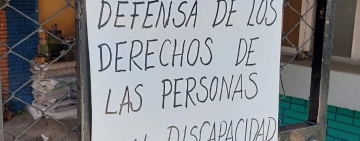 DEFENSA DE LOS
DERECHOS DE
LAS PERSONAS
CON DISCAPACIDAD